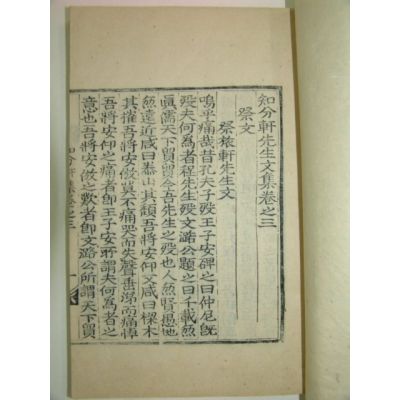 知分軒先生文集卷之三
祭文
祭旅軒先生文
嗚乎痛哉昔孔夫子歿王子安碑之曰仲尼旣
歿夫何爲者程先生歿文潞公題之曰千載無
眞儒天下貿貿今吾先生之歿也人無賢愚地
無遠近咸曰泰山其頹吾將安仰又咸曰樑木
其摧吾將安倣莫不痛哭而失聲垂涕而痛悼
吾將安仰之痛者卽王子安所謂夫何爲者之
意也吾將安倣之者卽文潞公所謂天下貿
知分軒集卷之三
一